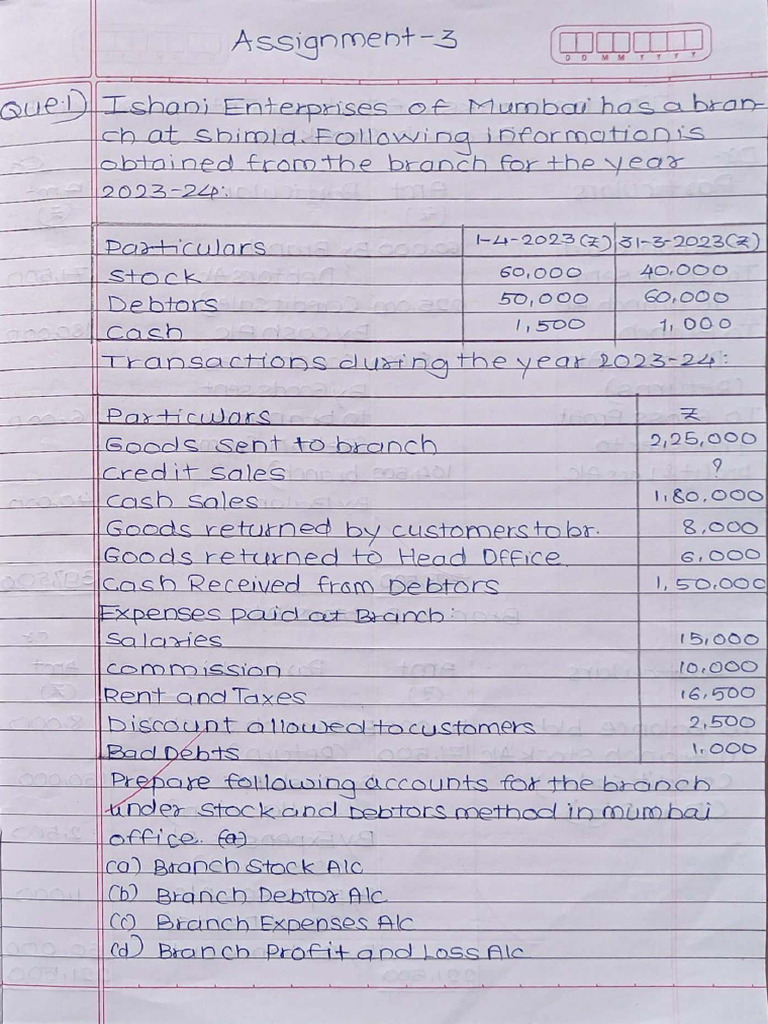 Assignment-3
D D M M Y Y Y Y
Que.1) Ishani Enterprises of Mumbai has a bran-
ch at Shimla. Following information is
obtained from the branch for the year
2023-24:
Particulars 1-4-2023(₹) 31-3-2023(₹)
Stock 60,000 40,000
Debtors 50,000 60,000
Cash 1,500 1,000
Transactions during the year 2023-24:
Particulars ₹
Goods sent to branch 2,25,000
credit sales ?
cash sales 1,80,000
Goods returned by customers to br. 8,000
Goods returned to Head Office. 6,000
Cash Received from Debtors 1,50,000
Expenses paid at Branch:
Salaries 15,000
commission 10,000
Rent and Taxes 16,500
Discount allowed to customers 2,500
Bad Debts 1,000
Prepare following accounts for the branch
under stock and Debtors method in mumbai
office. (a)
(a) Branch Stock A/c
(b) Branch Debtor A/c
(c) Branch Expenses A/c
(d) Branch Profit and Loss A/c